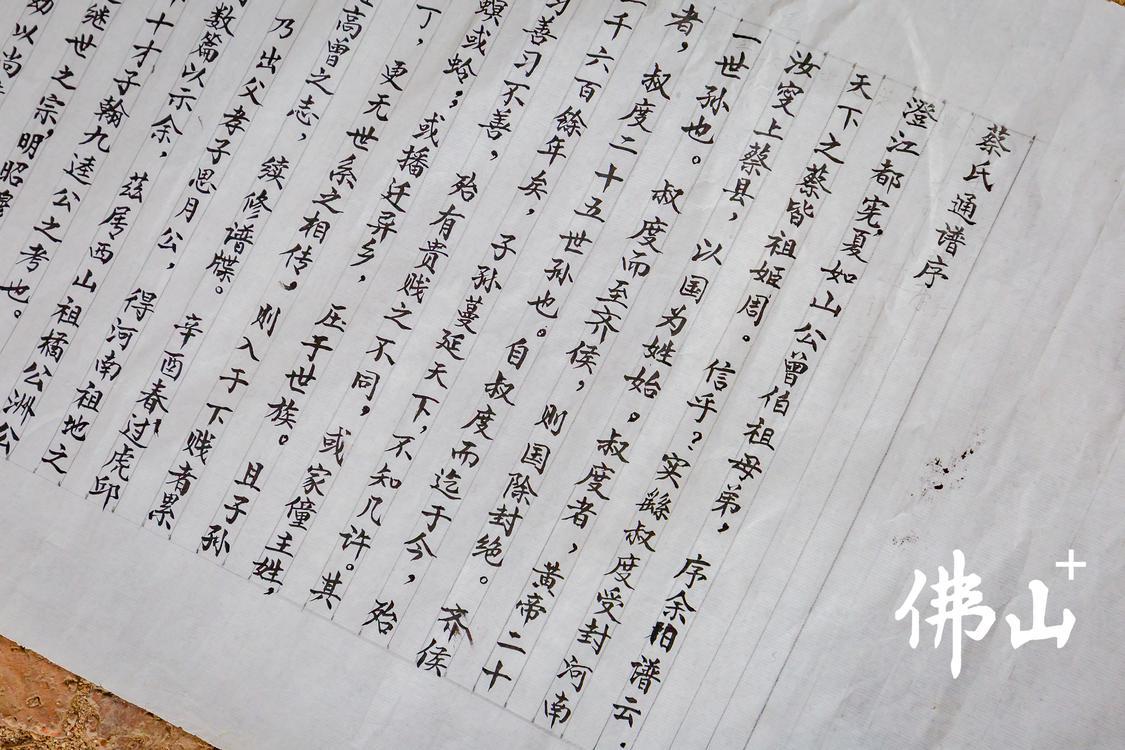 蔡氏通谱序
澄江都宪,夏如山公曾伯祖母弟,序余旧谱云.
天下之蔡皆祖姬周。信乎?实繇叔度受封河南
汝变上蔡县,以国为姓始。叔度者,黄帝二十
一世孙也。叔度而至齐侯,则国除封绝。齐侯
者,叔度二十五世孙也。自叔度而迄于今,殆
二千六百馀年矣,子孙蔓延天下,不知几许。其
习善习不善,殆有贵贱之不同,或家僮主姓,
螟或蛉;或播迁异乡,压于世族。且子孙
丁,更无世系之相传,则入于下贱者累
高曾之志,续修谱牒。辛酉春过虎邱
乃出父孝子思月公,得河南祖地之
数篇以示余,兹居西山祖橘公洲公
十才子翰九逵公之考也。
继世之宗,明昭穆
以尚
佛山+